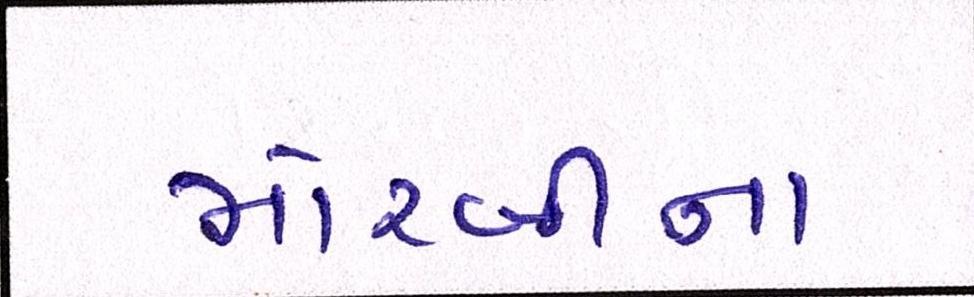 મોરબીના